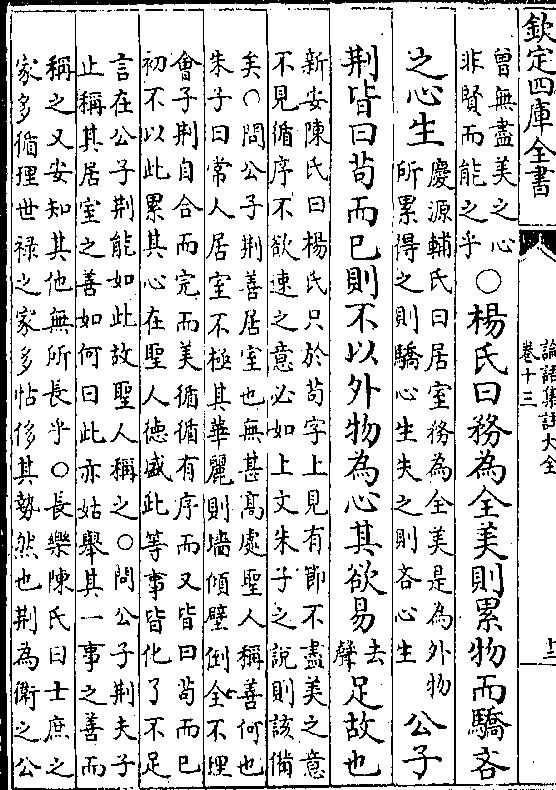 欽定四庫全書
論語集註大全
卷十三
曾無盡美之心
非賢而能之乎
○楊氏曰務為全美則累物而驕吝
之心生
慶源輔氏曰居室務為全美是為外物
所累得之則驕心生失之則吝心生
公子
荆皆曰苟而已則不以外物為心其欲易
去
聲
足故也
新安陳氏曰楊氏只於苟字上見有節不盡美之意
不見循序不欲速之意必如上文朱子之說則該備
矣○問公子荆善居室也無甚髙處聖人稱善何也
朱子曰常人居室不極其華麗則墻傾壁倒全不理
會子荆自合而完而美循循有序而又皆曰苟而已
初不以此累其心在聖人徳盛此等事皆化了不足
言在公子荆能如此故聖人稱之○問公子荆夫子
止稱其居室之善如何曰此亦姑舉其一事之善而
稱之又安知其他無所長乎○長樂陳氏曰士庶之
家多循理世禄之家多怙侈其勢然也荆為衛之公